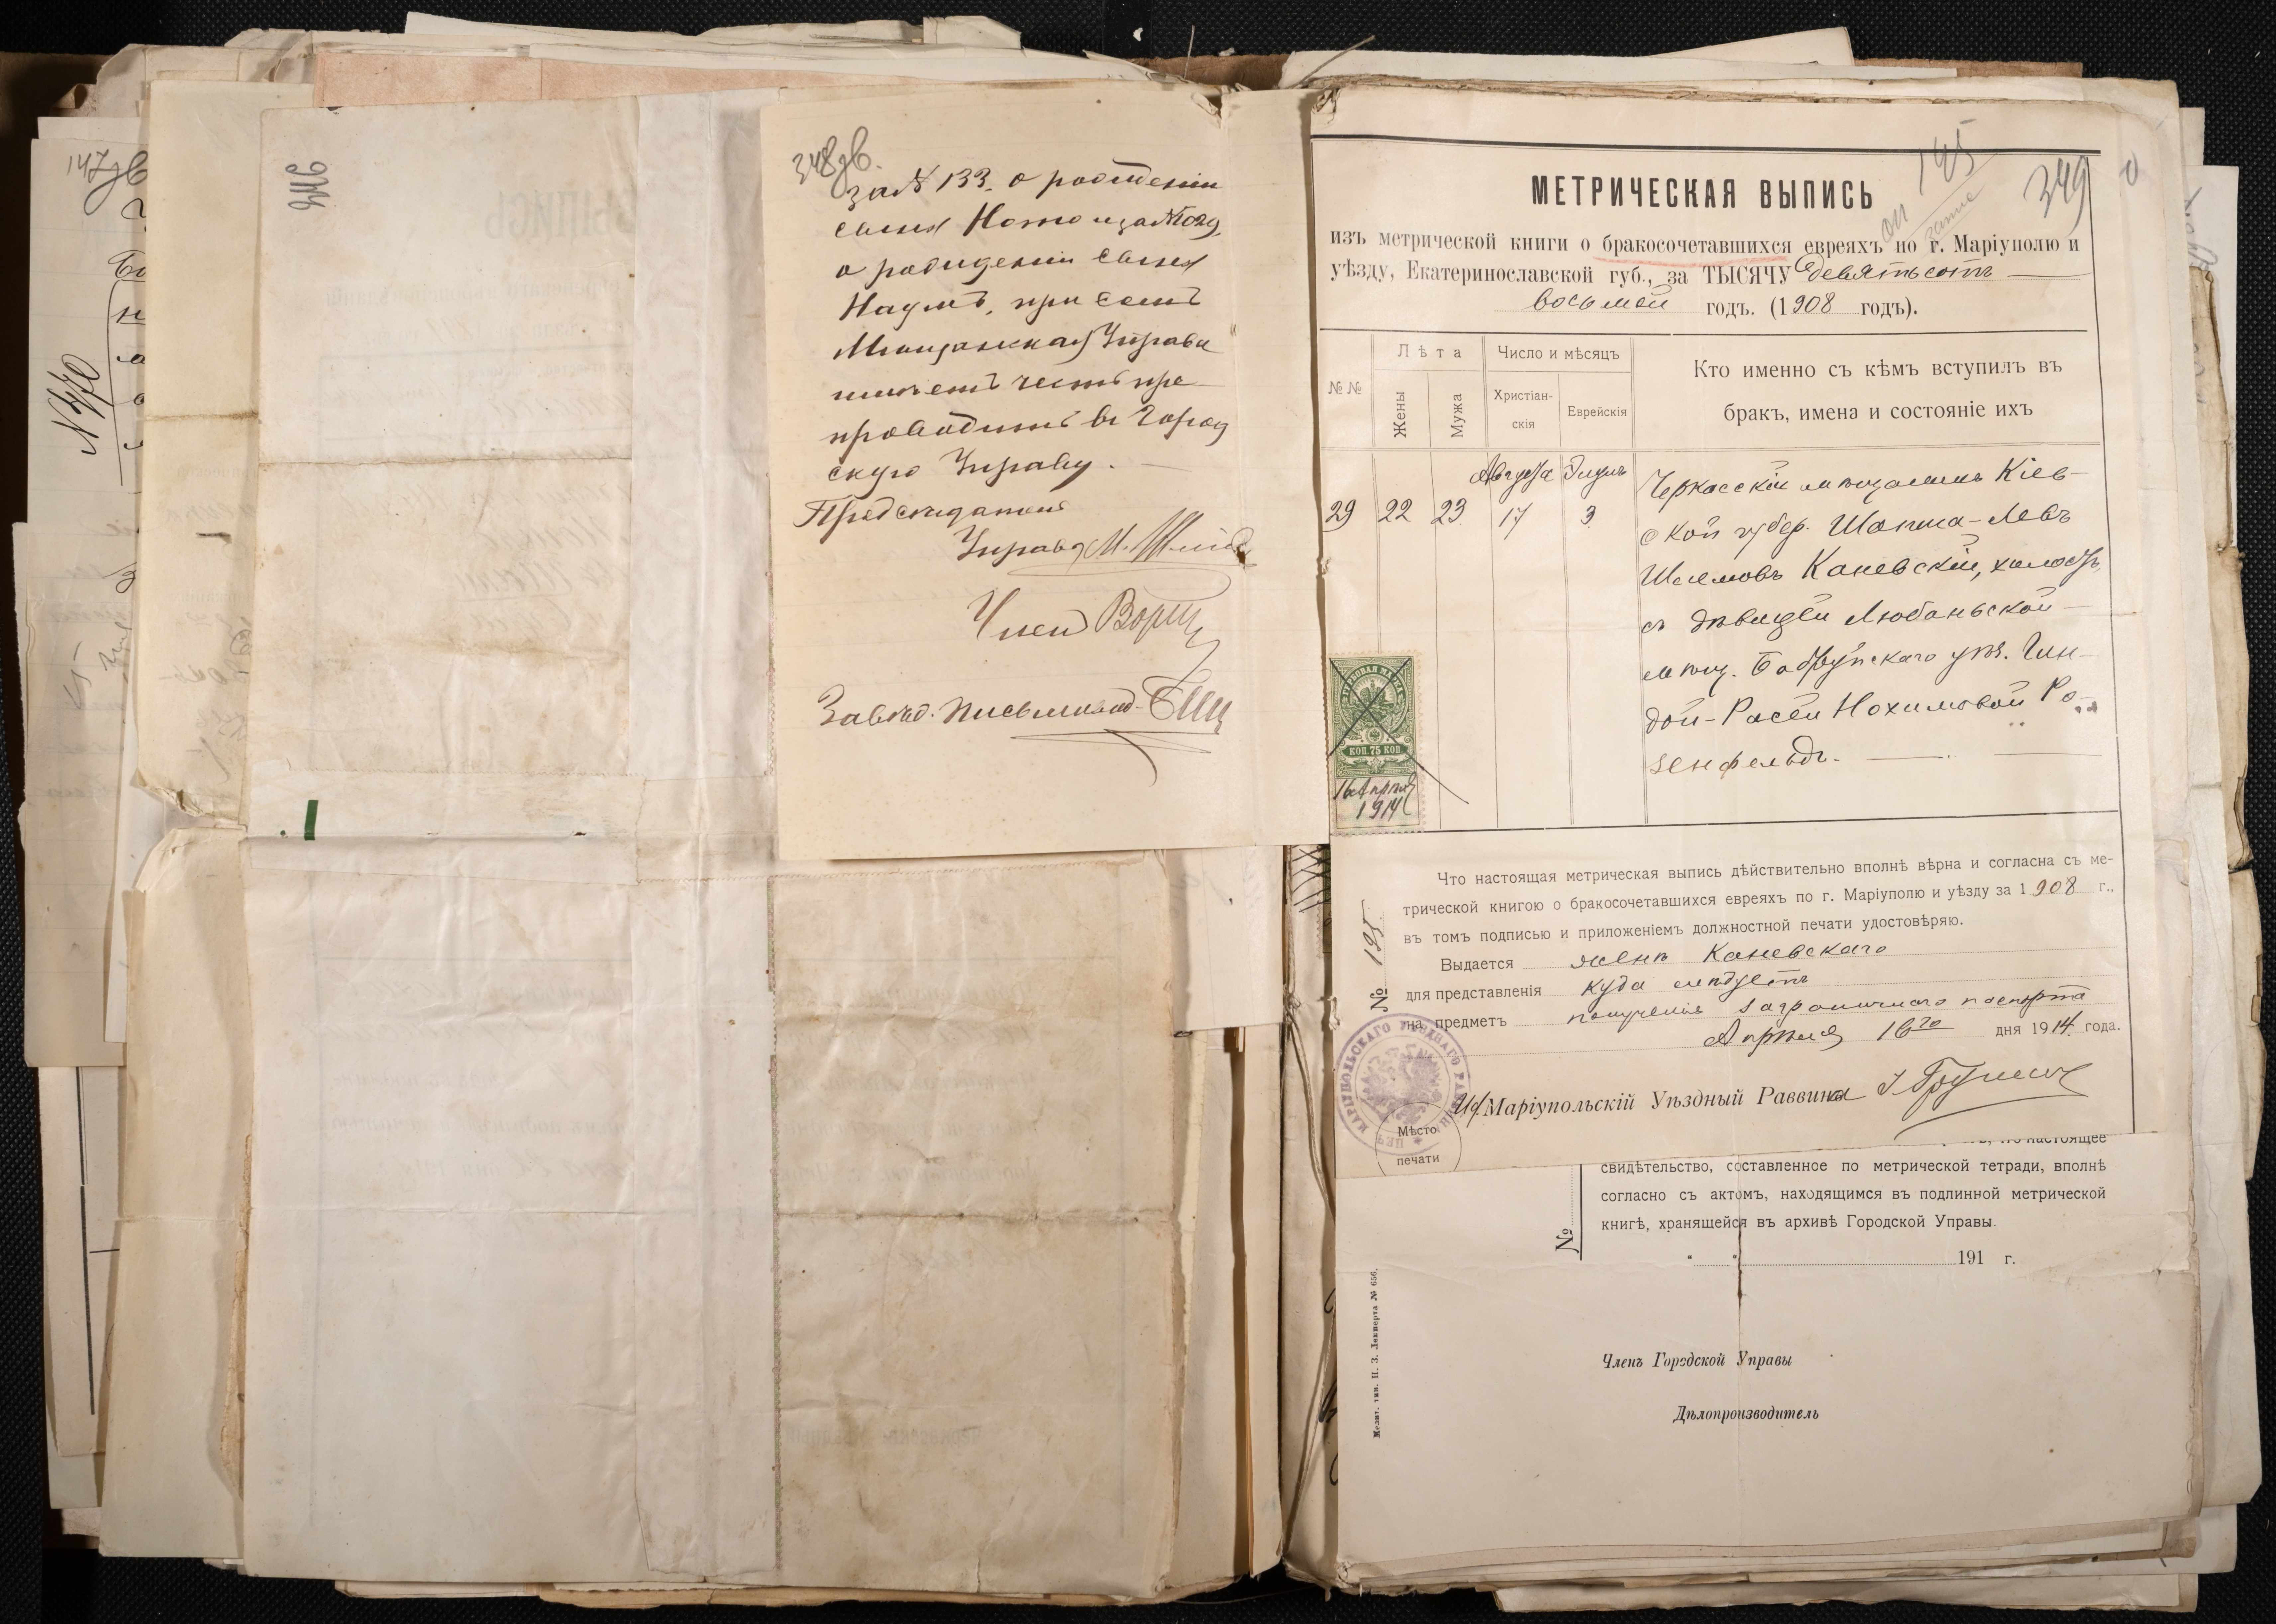 147 зв
№ 470
346
348 зв.
за № 133. о рождении
сына Ното и за № 1029,
о рождении сына
Наумъ, при семъ
Мещанская Управа
имѣетъ честь пре-
проводить въ Город
скую Управу.
Предсѣдатель
Управы М.
Членъ
Завѣд. письмовод.
145
349
МЕТРИЧЕСКАЯ ВЫПИСЬ
изъ метрической книги о бракосочетавшихся евреяхъ по г. Маріуполю и
уѣзду, Екатеринославской губ., за ТЫСЯЧУ девятьсотъ
восьмой годъ. (1908 годъ).
№№
Лѣта
Жены
Мужа
Число и мѣсяцъ
Христіан-
скія
Еврейскія
Кто именно съ кѣмъ вступилъ въ
бракъ, имена и состояніе ихъ
29 22 23 Августа 17 Элулъ 3
Черкасскій мѣщанинъ Кіев-
ской губер. Шапша-Левъ
Шлемовъ Каневскій, холостъ,
съ дѣвицей Любаньской
мѣщ. Бобруйскаго уѣз. Гин-
дой-Расей Нохимовой Ро-
зенфельдъ.
КОП. 75 КОП
16 Апрѣля
1914
Что настоящая метрическая выпись дѣйствительно вполнѣ вѣрна и согласна съ ме-
трической книгою о бракосочетавшихся евреяхъ по г. Маріуполю и уѣзду за 1908 г.,
въ томъ подписью и приложеніемъ должностной печати удостовѣряю.
№ 195
Выдается женѣ Каневскаго
для представленія куда слѣдуетъ
на предметъ полученія заграничнаго паспорта
Апрѣля 16го дня 1914 года.
И/д. Маріупольскій Уѣздный Раввина
Мѣсто
печати
настоящее
свидѣтельство, составленное по метрической тетради, вполнѣ
согласно съ актомъ, находящимся въ подлинной метрической
книгѣ, хранящейся въ архивѣ Городской Управы.
№
" " 191 г.
Членъ Городской Управы
Дѣлопроизводитель